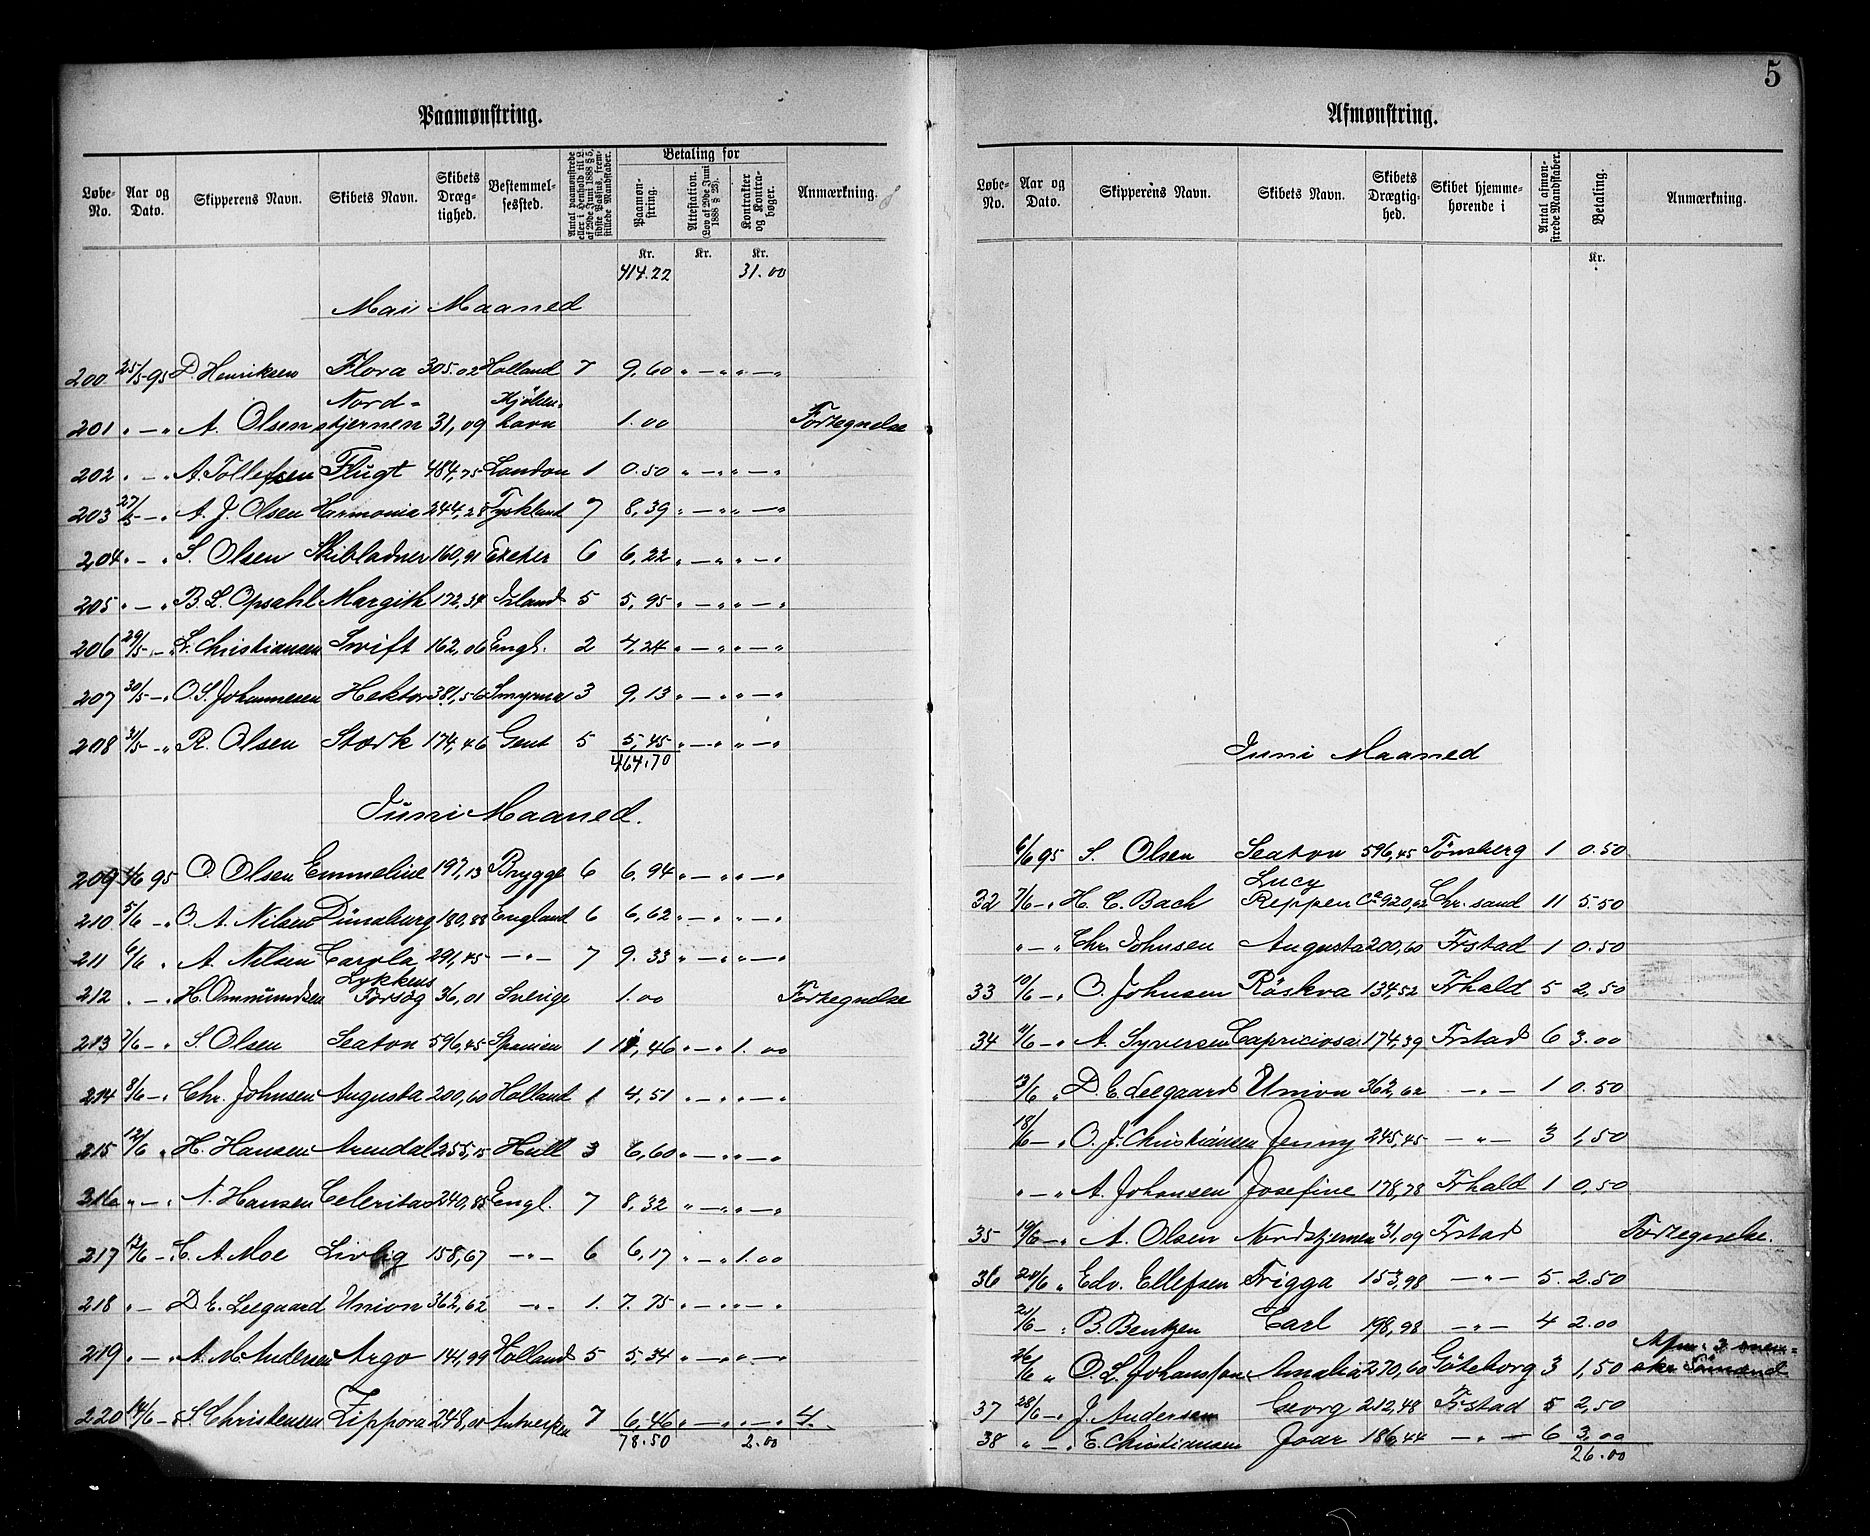 5
Paamønstring.
Løbe-No. Aar og Dato. Skipperens Navn. Skibets Navn. Skibets Dræg-tighed. Bestemmel-sessted. Antal paamønstrede eller i Henhold til L. af 29de Juni 1888 § 5, sidste Passus, frem-stillede Mandskaber. Betaling for Paamøn-string. Attestation. (Lov af 29de Juni 1888 § 28). Kontrakter og Kontra-bøger. Anmærkning.
Kr. Kr. Kr.
414.22 31.00
Mai Maaned
200 25/5 95 D. Henriksen Flora 305.02 Holland 7 9.60 " — " " — "
201 " — " A. Olsen Nord-stjernen 31,09 Kjøben-havn 1.00 Fortegnelse
202 " — " A. Tollefsen Flugt 484,75 London 1 0.50 " — " " — "
203 27/5 — " A. J. Olsen Harmonia 244,28 Tyskland 7 8,39 " — " " — "
204 " — " S. Olsen Skibladner 160,91 Exeter 6 6,22 " — " " — "
205 " — " B. L. Opsahl Margith 172,34 Island 5 5,95 " — " " — "
206 29/5 — " L. Christiansen Swift 162,06 Engl. 2 4,24 " — " " — "
207 30/5 — " O. S. Johannesen Hektor 381,56 Smyrna 3 9,13 " — " " — "
208 31/5 — " R. Olsen Stærk 174,46 Gent 5 5,45 " — " " — "
464.70
Juni Maaned.
209 4/6 95 O. Olsen Emmeline 197,13 Brygge 6 6,94 " — " " — "
210 5/6 — " O. A. Nilsen Dünaburg 180,88 England 6 6,62 " — " " — "
211 6/6 " A. Nilsen Carola 291,45 — " — 7 9.33 " — " " — "
212 " — " H. Ommundsen Lykkens Forsøg 36,01 Sverige 1.00 Fortegnelse
213 7/6 — " S. Olsen Seaton 596,45 Spanien 1 11,46 " — " 1.00
214 8/6 — " Chr. Johnsen Augusta 200,60 Holland 1 4,51 " — " " — "
215 12/6 " H. Hansen Arendal 255,15 Hull 3 6,60 " — " " — "
216 " — " N. Hansen Celeritas 240,85 Engl. 7 8,32 " — " " — "
217 13/6 — " C. A. Moe Livlig 158,67 — " — 6 6,17 " — " 1.00
218 " — D. E. Leegaard Union 362,62 — " — 1. 7.75 " — " " — "
219 " — " A. M. Andersen Argo 141,99 Holland 5 5,34 " — " " — "
220 14/6 — " S. Christensen Zippora 248,00 Antwerpen 7 6,46 " — " " — " 4.
78.50 2.00
Afmønstring.
Løbe-No. Aar og Dato. Skipperens Navn. Skibets Navn. Skibets Drægtig-hed. Skibet hjemme-hørende i Antal afmøn-strede Mandskaber. Betaling. Anmærkning.
Kr.
Juni Maaned
6/6 95 S. Olsen Seaton 596,45 Tønsberg 1 0.50
32 7/6 — " H. C. Bach Lucy Reppen Ca 920,62 Chr. sand 11 5.50
" — " Chr. Johnsen Augusta 200,60 Frstad 1 0.50
33 10/6 — " O. Johnsen Röskva 134,52 Frhald 5 2,50
34 11/6 — " A. Syversen Capriciosa 174,39 Frstad 6 3.00
13/6 " D. E. Leegaard Union 362,62 — " — 1 0.50
18/6 — " O. J. Christiansen Jenny 245,45 — " — 3 1,50
" — " A. Johansen Josefine 178,78 Frhald 1 0,50
35 19/6 — " A. Olsen Nordstjernen 31,09 Frstad Fortegnelse.
36 20/6 " Edv. Ellefsen Frigga 153,98 — " — 5. 2.50
21/6 — " B. Bentzen Carl 198,98 — " — 4 2.00
26/6 " O. L. Johansson Amalia 270,60 Göteborg 3 1,50 Afm. 3 sven-ske Sömænd
37 28/6 — " J. Andersen Georg 212,48 Frstad 5 2,50
38 " — " E. Christiansen Joar 186,44 — " — 6 3.00
26.00